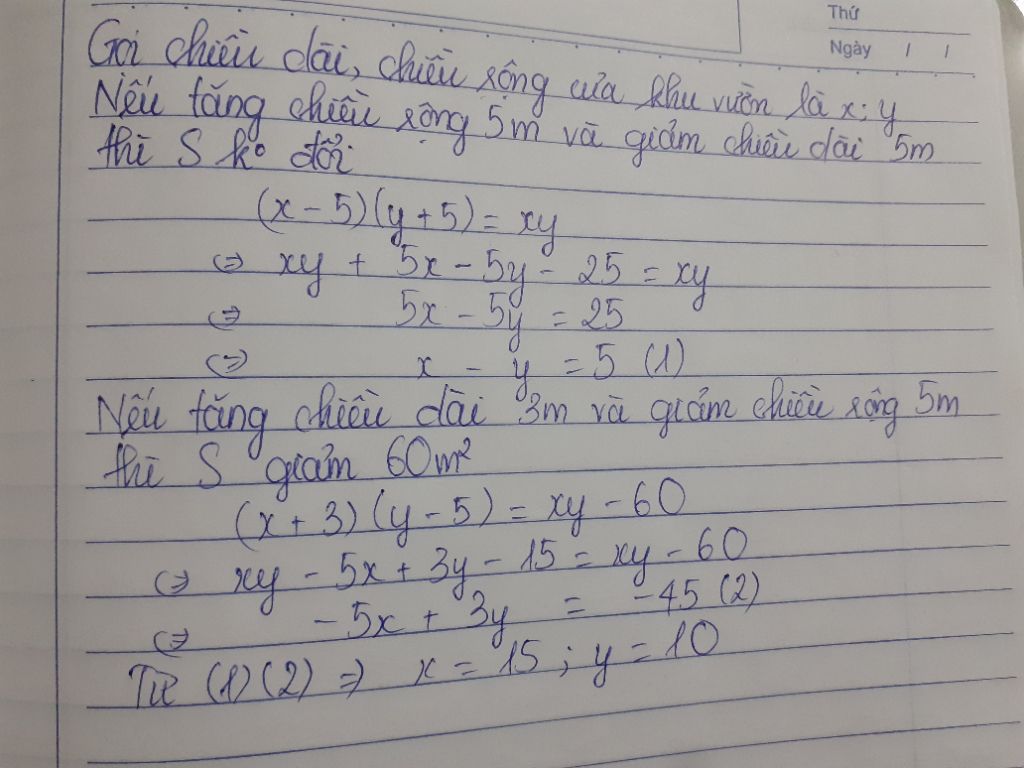 Thứ
Ngày / /
Gọi chiều dài, chiều rộng của khu vườn là x; y
Nếu tăng chiều rộng 5m và giảm chiều dài 5m
thì S k° đổi
(x - 5)(y + 5) = xy
⇔ xy + 5x - 5y - 25 = xy
⇔ 5x - 5y = 25
⇔ x - y = 5 (1)
Nếu tăng chiều dài 3m và giảm chiều rộng 5m
thì S giảm 60m²
(x + 3)(y - 5) = xy - 60
⇔ xy - 5x + 3y - 15 = xy - 60
⇔ - 5x + 3y = -45 (2)
Từ (1)(2) ⇒ x = 15 ; y = 10